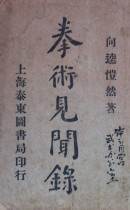 向逵愷然著
拳術見聞錄
上海泰東圖書局印行